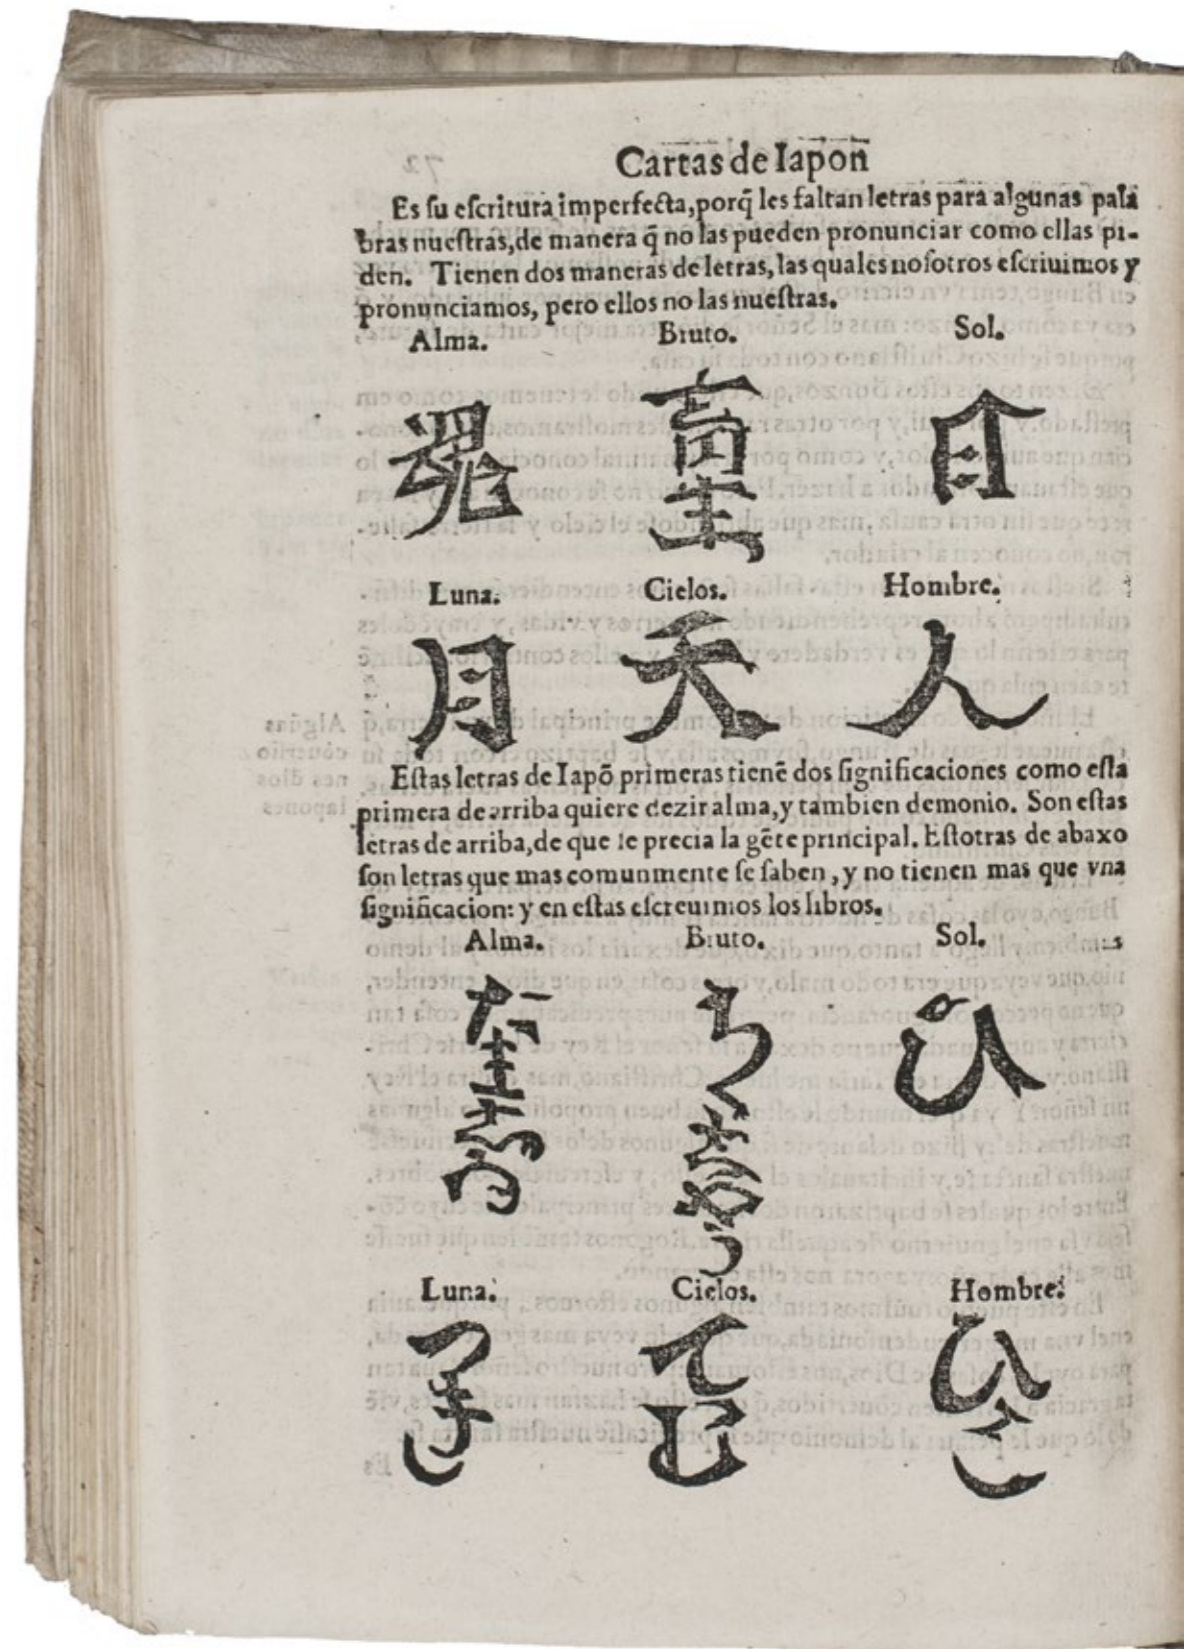 Cartas de Iapon
Es su escritura imperfecta, porq̃ les faltan letras para algunas palā
bras nuestras, de manera q̃ no las pueden pronunciar como ellas pi-
den. Tienen dos maneras de letras, las quales nosotros escriuimos y
pronunciamos, pero ellos no las nuestras.
Alma. Bruto. Sol.
魂 畜生 日
Luna. Cielos. Hombre.
月 天 人
Estas letras de Iapõ primeras tienẽ dos significaciones como esta
primera de arriba quiere dezir alma, y tambien demonio. Son estas
letras de arriba, de que se precia la gẽte principal. Estotras de abaxo
son letras que mas comunmente se saben, y no tienen mas que vna
significacion: y en estas escreuimos los libros.
Alma. Bruto. Sol.
ひ
Luna. Cielos. Hombre.
てん ひと